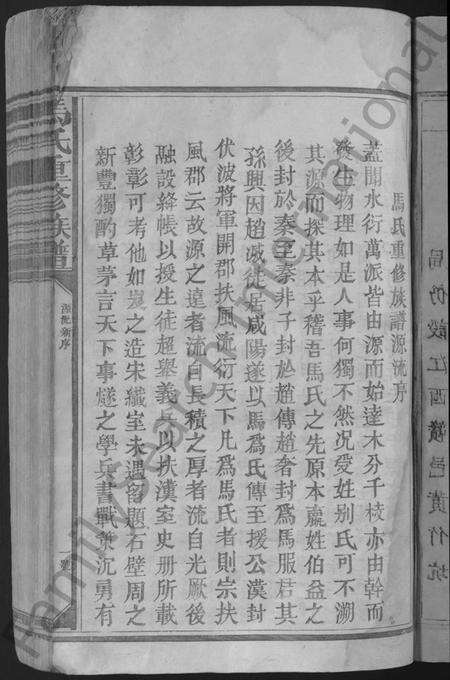 局仍設江西瀲邑黃竹坑
馬氏重修族譜源流序
蓋聞水衍萬派皆由源而始達木分千枝亦由幹而
發生物理如是人事何獨不然况受姓别氏可不溯
其源而探其本乎稽吾馬氏之先原本嬴姓伯益之
後封於秦至秦非子封於趙傳趙奢封爲馬服君其
孫興因趙滅徒居咸陽遂以馬爲氏傳至援公漢封
伏波將軍開郡扶風流衍天下凡爲馬氏者則宗扶
風郡云故源之遠者流自長積之厚者流自光厥後
融設絳帳以授生徒超舉義兵以扶漢室史册所載
彰彰可考他如之造宋纖室未遇留題石壁周之
新豐獨酌草茅言天下事燧之學兵書戰策沉勇有
馬氏重修族譜
源流新序
一
FamilySearch International